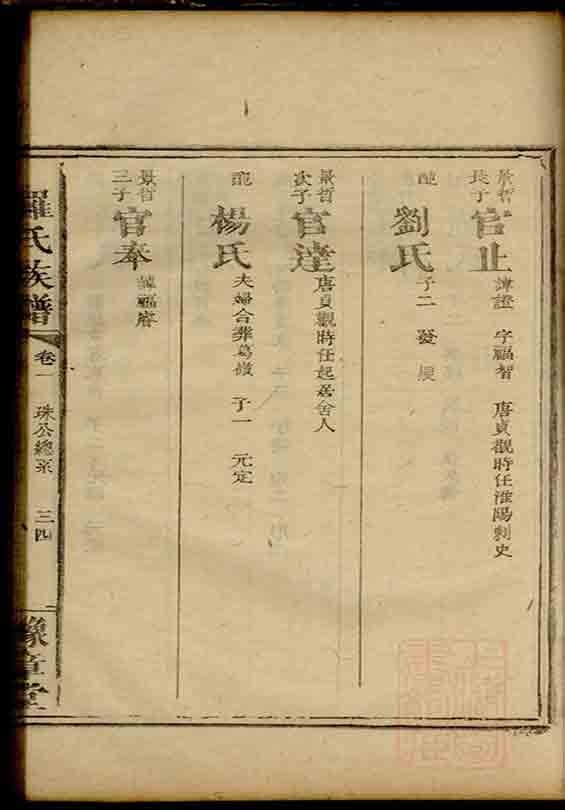 景哲長子 官止 諱證 字福智 唐貞觀時任淮陽刺史
配 劉氏 子二
景哲次子 官達 唐貞觀時任起居舍人
配 楊氏 夫婦合葬葛嶺 子一 元定
景哲三子 官奉 諱福睿
羅氏族譜 卷一 珠公總系 三四 豫章堂